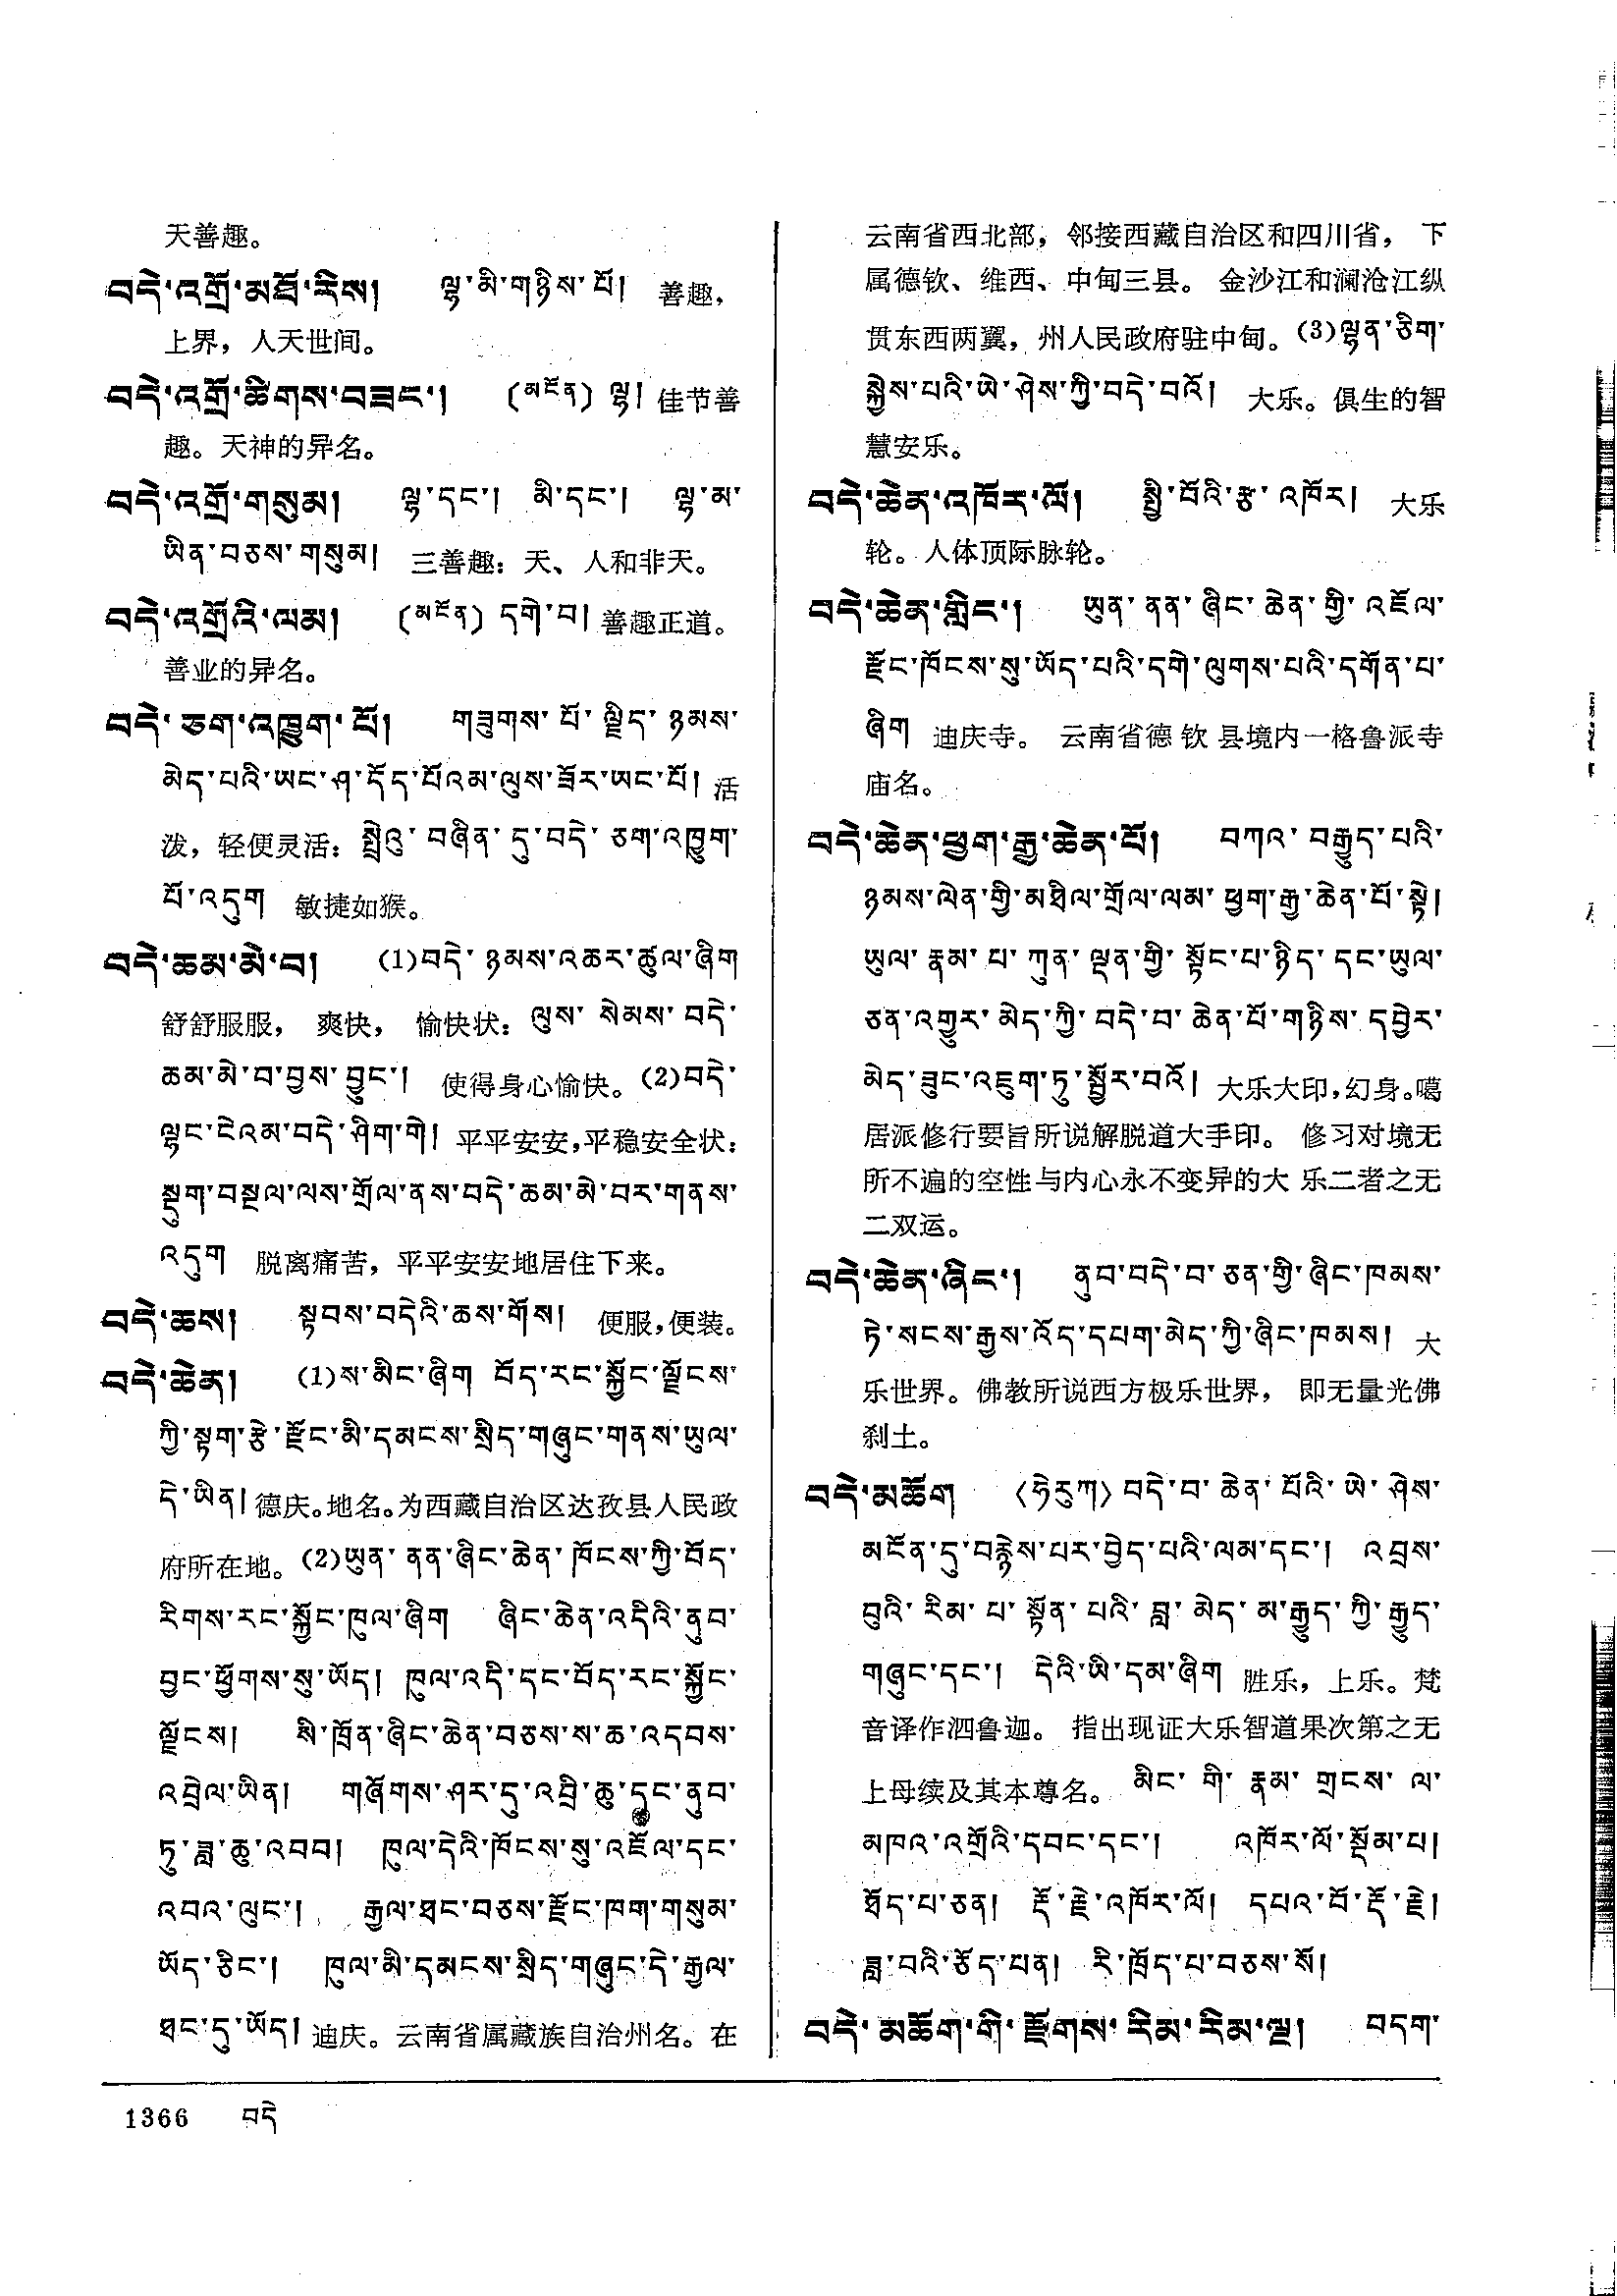 天善趣。
བདེ་འགྲོ་མཐོ་རིས། ལྷ་མི་གཉིས་པོ། 善趣，
上界，人天世间。
བདེ་འགྲོ་ཚིགས་བཟང་། (མངོན) ལྷ། 佳节善
趣。天神的异名。
བདེ་འགྲོ་གསུམ། ལྷ་དང་། མི་དང་། ལྷ་མ་
ཡིན་བཅས་གསུམ། 三善趣：天、人和非天。
བདེ་འགྲོའི་ལམ། (མངོན) དགེ་བ། 善趣正道。
善业的异名。
བདེ་ཅག་འཁྱུག་པོ། གཟུགས་པོ་ལྗིད་ཉམས་
མེད་པའི་ཡང་ཤ་དོད་པོའམ་ལུས་ཟོར་ཡང་པོ། 活
泼，轻便灵活：སྤྲེའུ་བཞིན་དུ་བདེ་ཅག་འཁྱུག་
པོ་འདུག 敏捷如猴。
བདེ་ཆམ་མེ་བ། (1)བདེ་ཉམས་འཆར་ཚུལ་ཞིག
舒舒服服，爽快，愉快状：ལུས་སེམས་བདེ་
ཆམ་མེ་བ་བྱས་བྱུང་། 使得身心愉快。(2)བདེ་
ལྷང་ངེའམ་བདེ་ཤིག་གེ། 平平安安，平稳安全状：
སྡུག་བསྔལ་ལས་གྲོལ་ནས་བདེ་ཆམ་མེ་བར་གནས་
འདུག 脱离痛苦，平平安安地居住下来。
བདེ་ཆས། སྟབས་བདེའི་ཆས་གོས། 便服，便装。
བདེ་ཆེན། (1)ས་མིང་ཞིག བོད་རང་སྐྱོང་ལྗོངས་
ཀྱི་སྟག་རྩེ་རྫོང་མི་དམངས་སྲིད་གཞུང་གནས་ཡུལ་
དེ་ཡིན། 德庆。地名。为西藏自治区达孜县人民政
府所在地。(2)ཡུན་ནན་ཞིང་ཆེན་ཁོངས་ཀྱི་བོད་
རིགས་རང་སྐྱོང་ཁུལ་ཞིག ཞིང་ཆེན་འདིའི་ནུབ་
བྱང་ཕྱོགས་སུ་ཡོད། ཁུལ་འདི་དང་བོད་རང་སྐྱོང་
ལྗོངས། སི་ཁྲོན་ཞིང་ཆེན་བཅས་ས་ཆ་འདབས་
འབྲེལ་ཡིན། གཞོགས་ཤར་དུ་འབྲི་ཆུ་དང་ནུབ་
ཏུ་ཟླ་ཆུ་འབབ། ཁུལ་དེའི་ཁོངས་སུ་འཇོལ་དང་
འབའ་ལུང་། རྒྱལ་ཐང་བཅས་རྫོང་ཁག་གསུམ་
ཡོད་ཅིང་། ཁུལ་མི་དམངས་སྲིད་གཞུང་དེ་རྒྱལ་
ཐང་དུ་ཡོད། 迪庆。云南省属藏族自治州名。在
云南省西北部，邻接西藏自治区和四川省，下
属德钦、维西、中甸三县。金沙江和澜沧江纵
贯东西两翼，州人民政府驻中甸。(3)ལྷན་ཅིག་
སྐྱེས་པའི་ཡེ་ཤེས་ཀྱི་བདེ་བའོ། 大乐。俱生的智
慧安乐。
བདེ་ཆེན་འཁོར་ལོ། སྤྱི་བོའི་རྩ་འཁོར། 大乐
轮。人体顶际脉轮。
བདེ་ཆེན་གླིང་། ཡུན་ནན་ཞིང་ཆེན་གྱི་འཇོལ་
རྫོང་ཁོངས་སུ་ཡོད་པའི་དགེ་ལུགས་པའི་དགོན་པ་
ཞིག 迪庆寺。云南省德钦县境内一格鲁派寺
庙名。
བདེ་ཆེན་ཕྱག་རྒྱ་ཆེན་པོ། བཀའ་བརྒྱུད་པའི་
ཉམས་ལེན་གྱི་མཐིལ་གྲོལ་ལམ་ཕྱག་རྒྱ་ཆེན་པོ་སྟེ།
ཡུལ་རྣམ་པ་ཀུན་ལྡན་གྱི་སྟོང་པ་ཉིད་དང་ཡུལ་
ཅན་འགྱུར་མེད་ཀྱི་བདེ་བ་ཆེན་པོ་གཉིས་དབྱེར་
མེད་ཟུང་འཇུག་ཏུ་སྦྱོར་བའོ། 大乐大印，幻身。噶
居派修行要旨所说解脱道大手印。修习对境无
所不遍的空性与内心永不变异的大乐二者之无
二双运。
བདེ་ཆེན་ཞིང་། ནུབ་བདེ་བ་ཅན་གྱི་ཞིང་ཁམས་
ཏེ་སངས་རྒྱས་འོད་དཔག་མེད་ཀྱི་ཞིང་ཁམས། 大
乐世界。佛教所说西方极乐世界，即无量光佛
刹土。
བདེ་མཆོག 〈ཧེརུཀ〉བདེ་བ་ཆེན་པོའི་ཡེ་ཤེས་
མངོན་དུ་བརྙེས་པར་བྱེད་པའི་ལམ་དང་། འབྲས་
བུའི་རིམ་པ་སྟོན་པའི་བླ་མེད་མ་རྒྱུད་ཀྱི་རྒྱུད་
གཞུང་དང་། དེའི་ཡི་དམ་ཞིག 胜乐，上乐。梵
音译作泗鲁迦。指出现证大乐智道果次第之无
上母续及其本尊名。མིང་གི་རྣམ་གྲངས་ལ་
མཁའ་འགྲོའི་དབང་དང་། འཁོར་ལོ་སྡོམ་པ།
ཐོད་པ་ཅན། རྡོ་རྗེ་འཁོར་ལོ། དཔའ་བོ་རྡོ་རྗེ།
ཟླ་བའི་ཅོད་པན། རི་ཁྲོད་པ་བཅས་སོ།
བདེ་མཆོག་གི་རྫོགས་རིམ་རིམ་ལྔ། བདག་
1366 བདེ